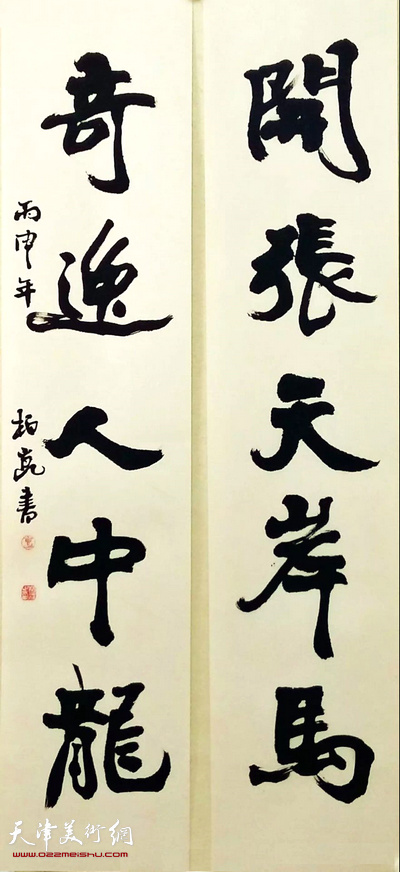 開張天岸馬
奇逸人中龍
丙申年
柏亮書
天津美術網
www.022meishu.com